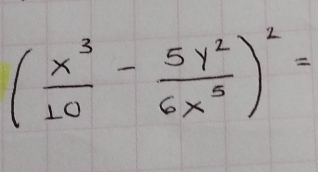 (x³/10 - 5y²/6x⁵)² =